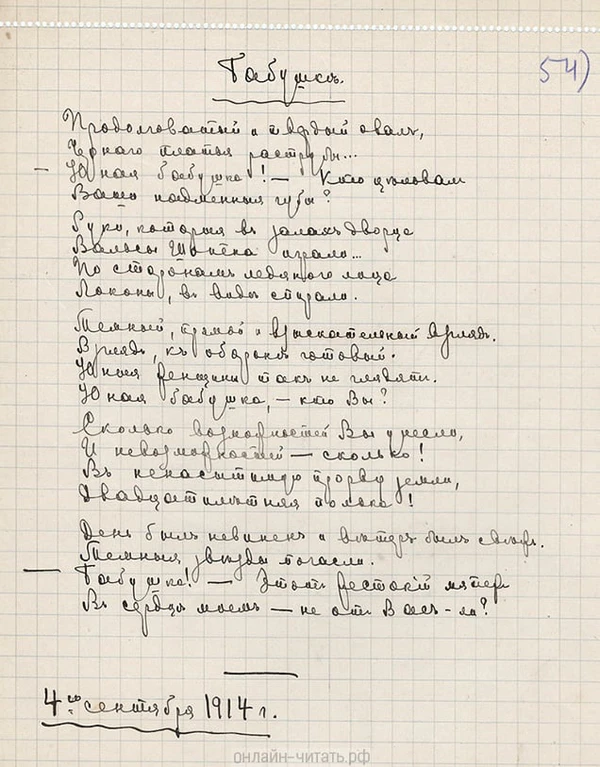 Бабушкѣ.
54)
Продолговатый и твердый овалъ,
Чернаго платья раструбы...
— Юная бабушка! — Кто цѣловалъ
Ваши надменныя губы?
Руки, которыя въ залахъ дворца
Вальсы Шопена играли...
По сторонамъ ледяного лица
Локоны, въ видѣ спирали.
Темный, прямой и взыскательный взглядъ.
Взглядъ, къ оборонѣ готовый.
Юныя женщины такъ не глядятъ.
Юная бабушка, — кто Вы?
Сколько возможностей Вы унесли,
И невозможностей — сколько!
Въ ненасытимую прорву земли,
Двадцатилѣтняя полька!
День былъ невиненъ и вѣтеръ былъ свѣжъ.
Темныя звѣзды погасли.
— Бабушка! — Этотъ жестокій мятежъ
Въ сердцѣ моемъ — не отъ Васъ-ли?
4го сентября 1914 г.
онлайн-читать.рф